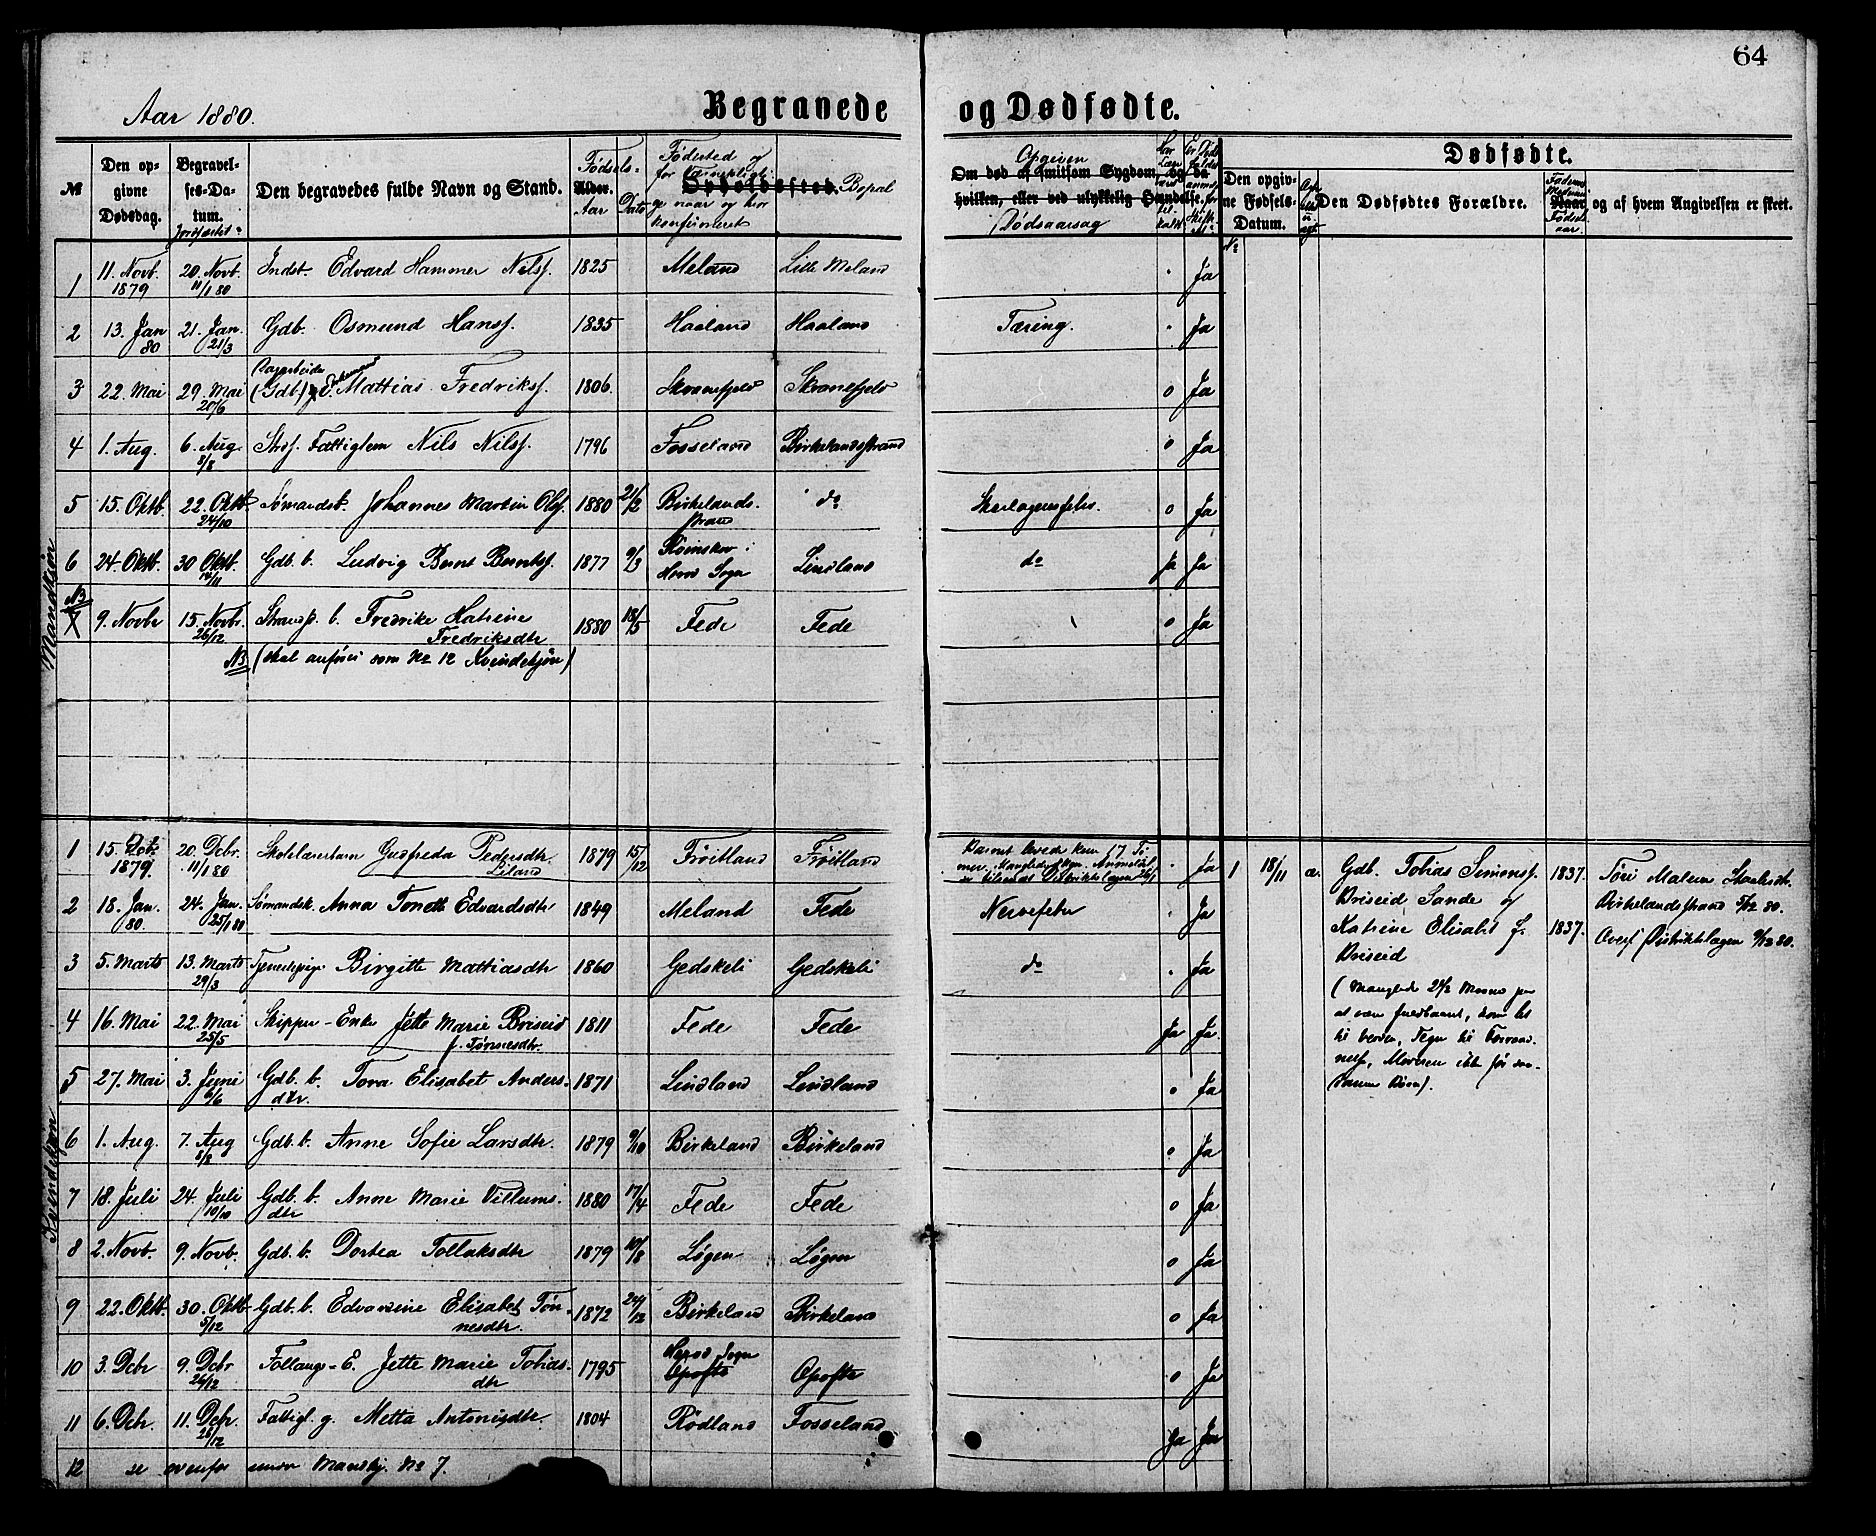 64
Aar 1880.
Begravede og Dødfødte.
№
Den opgivne Dødsdag.
Begravelses-Datum. Jordfæstet
Den begravedes fulde Navn og Stand.
Fødsels- Alder. Aar Dato
Fødested og for Opholdssted. Bopæl
naar og hvor konfirmeret
Opgiven
Om død af smitsom Sygdom, og da
hvilken, eller ved ulykkelig Hændelse.
Dødsaarsag
Dødfødte.
Den opgivne Fødsels-Datum.
Den Dødfødtes Forældre.
og af hvem Angivelsen er skeet.
Mandkjøn
1 11. Novb. 1879 20. Novb. 11/1 80 Indst. Edvard Hammer Nilsf. 1825 Meland Lille Meland Ja
2 13. Jan 80 21. Jan. 21/3 Gdb. Osmund Hansf. 1835 Haaland Haaland Tæring. Ja
3 22. Mai 29. Mai 20/6 (Gdb.) Mattias Fredriksf. 1806. Skranefjeld Skranefjeld o Ja
4 1. Aug. 6. Aug 8/8 Strs. Fattiglem Nils Nilsf. 1796 Fosseland Birkelandsstrand o Ja
5 15. Oktb. 22. Oktb 24/10 Sømandsb. Johannes Martin Olsf. 1880 21/2 Birkelands- strand do Skarlagensfeber. o Ja
6 24. Oktb. 30 Oktb. 14/11 Gdb. b. Ludvig Bernt Berntsf. 1877 9/3 i Herad Sogn Lindland do Ja Ja
NB 7 9. Novbr 15. Novbr. 26/12 Strands. b. Fredrike Katrine Fredriksdtr 1880 18/5 Fede Fede o Ja
NB (skal anføres som No 12 Kvindekjøn)
Kvindekjøn
1 15. 1879. 20. Dcbr. 11/1 80 Skolelærerbarn Gusfreda Pedersdtr. Liland 1879 15/12 Frøitland Frøitland Barnet levede kun 17 Timer. Ja
2 18. Jan. 80. 24. Jan. 25/1 80 Sømandsk. Anna Tonette Edvardsdtr 1849 Meland Fede Nervefeber Ja
3 5. Marts 13. Marts 29/3 Tjenestepige Birgitte Mattiasdtr 1860 Gedskeli Gedskeli do Ja
4 16. Mai 22. Mai 25/5 Skipper-Enke Jette Marie Briseid f. Tønnesdtr. 1811 Fede Fede Ja Ja.
5 27. Mai 3. Juni 6/6 Gdb. b. Tora Elisabet Andersdtr. 1871 Lindland Lindland o Ja
6 1. Aug. 7. Aug 8/8 Gdb. b. Anne Sofie Larsdtr. 1879 9/10 Birkeland Birkeland o Ja
7 18. Juli 24. Juli 10/10 Gdb. b. Anne Marie Villumsdtr 1880 17/4 Fede Fede o Ja
8 2. Novb. 9. Novb. Gdb. b. Dortea Tollaksdtr 1879 10/8 Løgen Løgen o Ja
9 22. Oktb. 30. Oktb 5/12 Gdb. b. Edvarsine Elisabet Tønnesdtr. 1872 24/12 Birkeland Birkeland o Ja
10 3. Dcbr 9. Dcbr 26/12 Follaugs-E. Jette Marie Tobiasdtr 1795 Herad Sogn Opofte Opofte o Ja
11 6. Dcbr. 11. Dcbr. 26/12 Fattigl. g. Metta Antonisdtr. 1804 Rødland Fosseland Ja Ja
12 se ovenfor under Mandkj. No 7.
1 18/11 æ. Gdb. Tobias Simonsf. 1837.
Briseid Sande og
Katrine Elisabet f. 1837.
Briseid
(Manglede 2 1/2 Maaned paa
at være fuldbaaret, kom
til Verden, Tegn til
Moderen ikke før
Børn).
Tøri Malene
Birkelandsstrand 5/12 80.
Overf Distriktslægen 9/12 80.